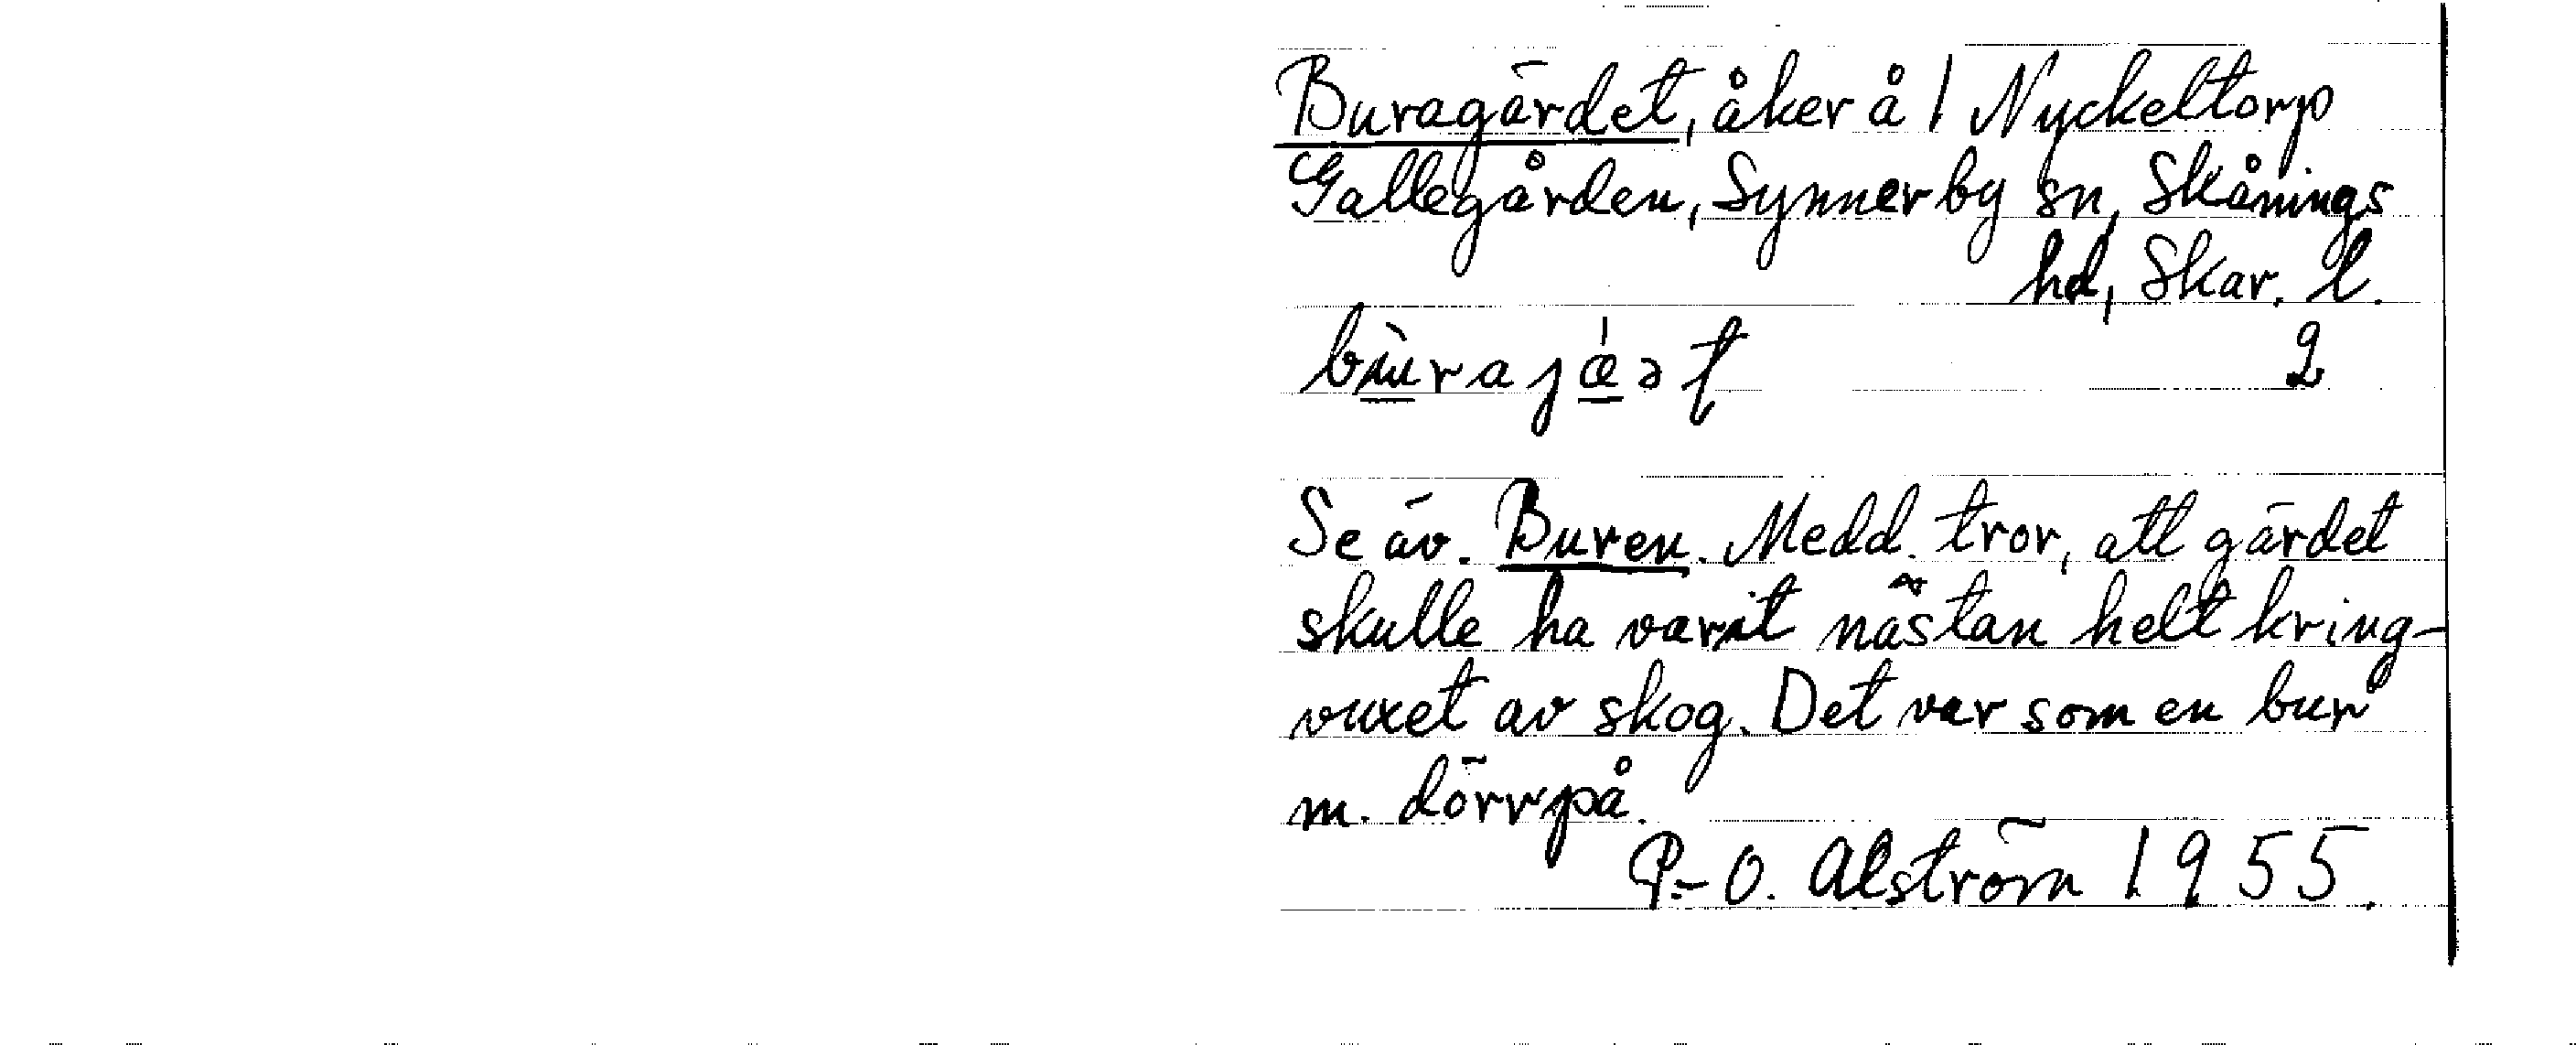 Buragärdet, åker å 1 Nyckeltorp
Gallegården, Synnerby sn, Skånings
hd, Skar. l.
2
Se äv. Buren. Medd. tror, att gärdet
skulle ha varit nästan helt kring-
vuxet av skog. Det var som en bur
m. dörr på.
P.-O. Alström 1955.